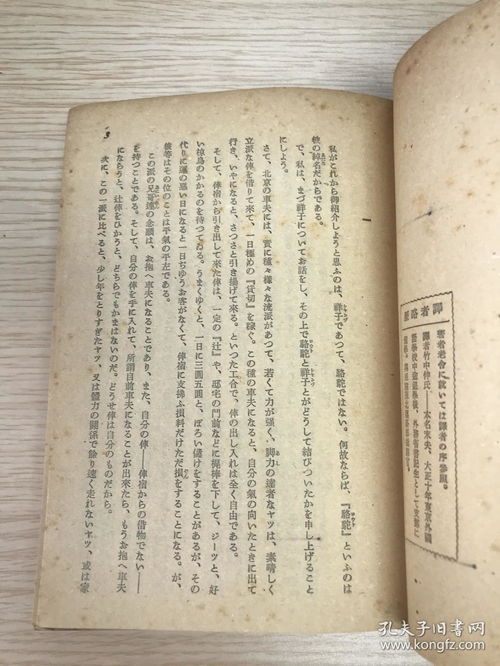 譯者略歷
著者老舍に就いては譯者の序參照。
譯者竹中伸氏――本名末央、大正十年東京外國
私がこれから御紹介しようと思ふのは、祥子であつて、駱駝ではない。何故ならば、『駱駝』といふのは
彼の綽名だからである。
で、私は、まづ祥子についてお話をし、その上で駱駝と祥子とがどうして結びついたかを申し上げること
にしよう。
さて、北京の車夫には、實に種々樣々な流派があつて、若くて力が强く、脚力の達者なヤツは、素晴しく
立派な俥を借りて來て、一日極めの『貸切』を稼ぐ。この種の車夫になると、自分の氣の向いたときに出て
行き、いやになると、さつさと引き揚げて來る。といつた工合で、俥の出し入れは全く自由である。
そして、俥宿から引き出して來た俥は、一定の『辻』や、邸宅の門前などに梶棒を下して、ジーツと、好
い椋鳥のかかるのを待つてゐる。うまくゆくと、一日に三圓五圓と、ぼろい儲けをすることがあるが、その
代りに運の惡い日になると一日ぢゆうお客がなくて、俥宿に支拂ふ損料だけただ損をすることになる。が、
彼等はその位のことは平氣の平左である。
この派の兄哥達の念願は、お抱へ車夫になることであり、また、自分の俥――俥宿からの借物でない――
を持つことである。そして、自分の俥を手に入れて、所謂自前車夫になることが出來たら、もうお抱へ車夫
にならうと、辻俥をひかうと、どちらでもかまはないのだ。どうせ俥は自分のものだから。
次に、この一派に比べると、少し年をとりすぎたヤツ、又は體力の關係で餘り速く走れないヤツ、或は家
孔夫子旧书网
www.kongfz.com